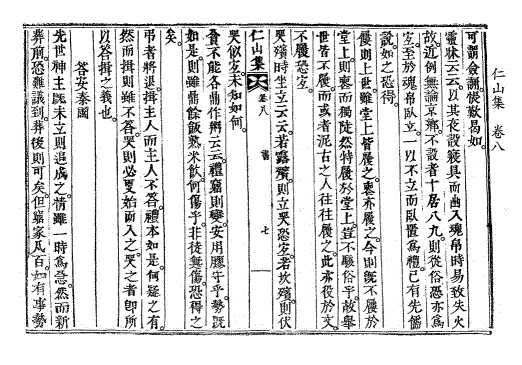 仁山集 卷八
可謂僉誦後歎曷如
靈牀云云以其衣設寢具而幽入魂帛時易致失火
故近例無論京鄕不設者十居八九則從俗恐亦爲
宜至於魂帛臥立一以不立而臥置爲禮已有先儒
說如之恐得
屨則上世雖堂上皆屨之喪亦屨之今則旣不屨於
堂上則喪而獨徒然特屨於堂上豈不駭俗乎故擧
世皆不屨而或者泥古之人徃徃屨之此亦役於文
不屨恐宜
哭殯時坐立云云若露殯則立哭恐宜若坎殯則伏
哭似宜未知如何
仁山集 卷八 書 七
貧不能各鼎作粥云云禮窮則變安用膠守乎勢旣
如是則雖鼎餘飯熟米飮何傷乎非徒無傷恐得之
矣
弔者將退揖主人而主人不答禮本如是何疑之有
然而揖則雖不答哭則必更始而入之哭之者卽所
以答揖之義也
答安泰國
先世神主旣未立則追成之情雖一時爲急然而新
葬前恐難議到葬後則可矣但窮家凡百如有事勢